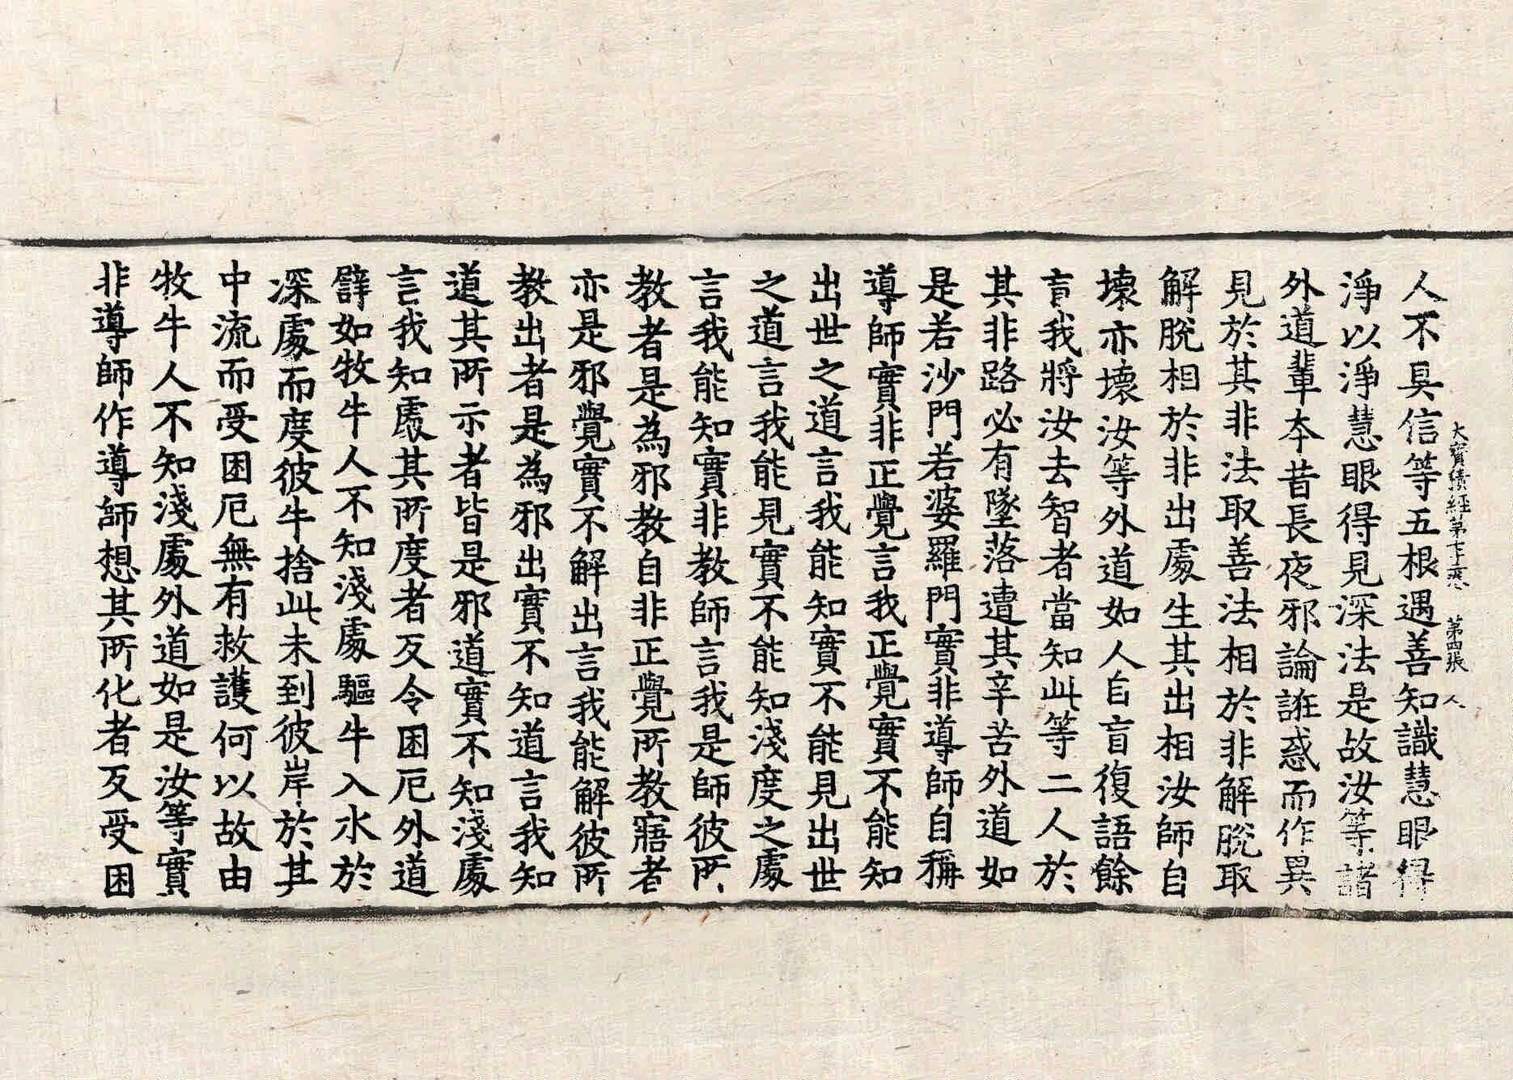 大寶績經第七十卷 第四張 人
人不具信等五根遇善知識慧眼得
淨以淨慧眼得見深法是故汝等諸
外道輩本昔長夜邪論誑惑而作異
見於其非法取善法相於非解脫取
解脫相於非出處生其出相汝師自
壞亦壞汝等外道如人自盲復語餘
盲我將汝去智者當知此等二人於
其非路必有墜落遭其辛苦外道如
是若沙門若婆羅門實非導師自稱
導師實非正覺言我正覺實不能知
出世之道言我能知實不能見出世
之道言我能見實不能知淺度之處
言我能知實非教師言我是師彼所
教者是為邪教自非正覺所教寤者
亦是邪覺實不解出言我能解彼所
教出者是為邪出實不知道言我知
道其所示者皆是邪道實不知淺處
言我知處其所度者反令困厄外道
譬如牧牛人不知淺處驅牛入水於
深處而度彼牛捨此未到彼岸於其
中流而受困厄無有救護何以故由
牧牛人不知淺處外道如是汝等實
非導師作導師想其所化者反受困